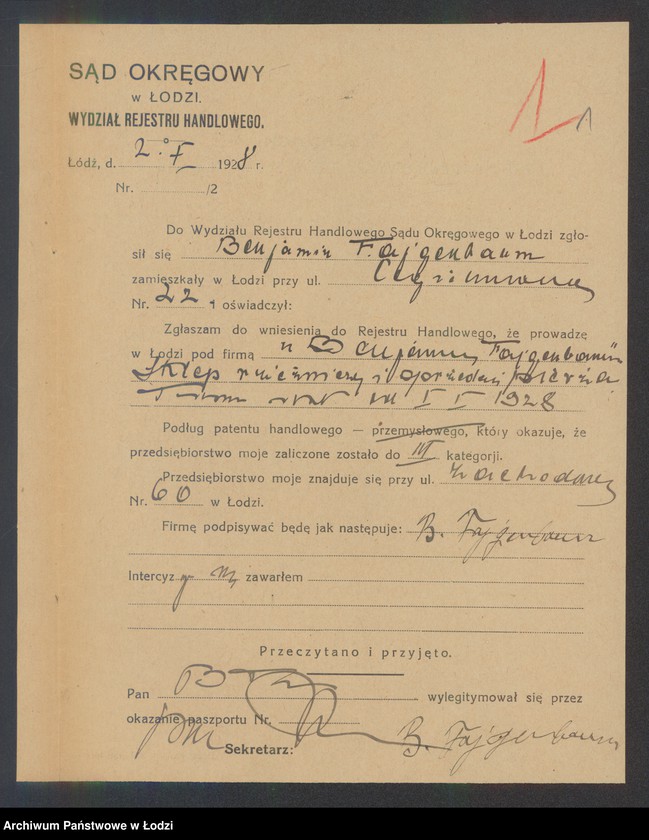 SĄD OKRĘGOWY
w ŁODZI.
WYDZIAŁ REJESTRU HANDLOWEGO.
1 1
Łódź, d. 2. 1928 r.
Nr. /2
Do Wydziału Rejestru Handlowego Sądu Okręgowego w Łodzi zgło-
sił się Benjamin Fajgenbaum
zamieszkały w Łodzi przy ul.
Nr. 22 i oświadczył:
Zgłaszam do wniesienia do Rejestru Handlowego, że prowadzę
w Łodzi pod firmą „ Fajgenbaum"
Sklep i sprzedaż
I I 1928
Podług patentu handlowego — przemysłowego, który okazuje, że
przedsiębiorstwo moje zaliczone zostało do III kategorji.
Przedsiębiorstwo moje znajduje się przy ul. Zachodniej
Nr. 60 w Łodzi.
Firmę podpisywać będę jak następuje: B. Fajgenbaum
Intercyzy nie zawarłem
Przeczytano i przyjęto.
Pan wylegitymował się przez
okazanie paszportu Nr.
Sekretarz: B. Fajgenbaum
Archiwum Państwowe w Łodzi